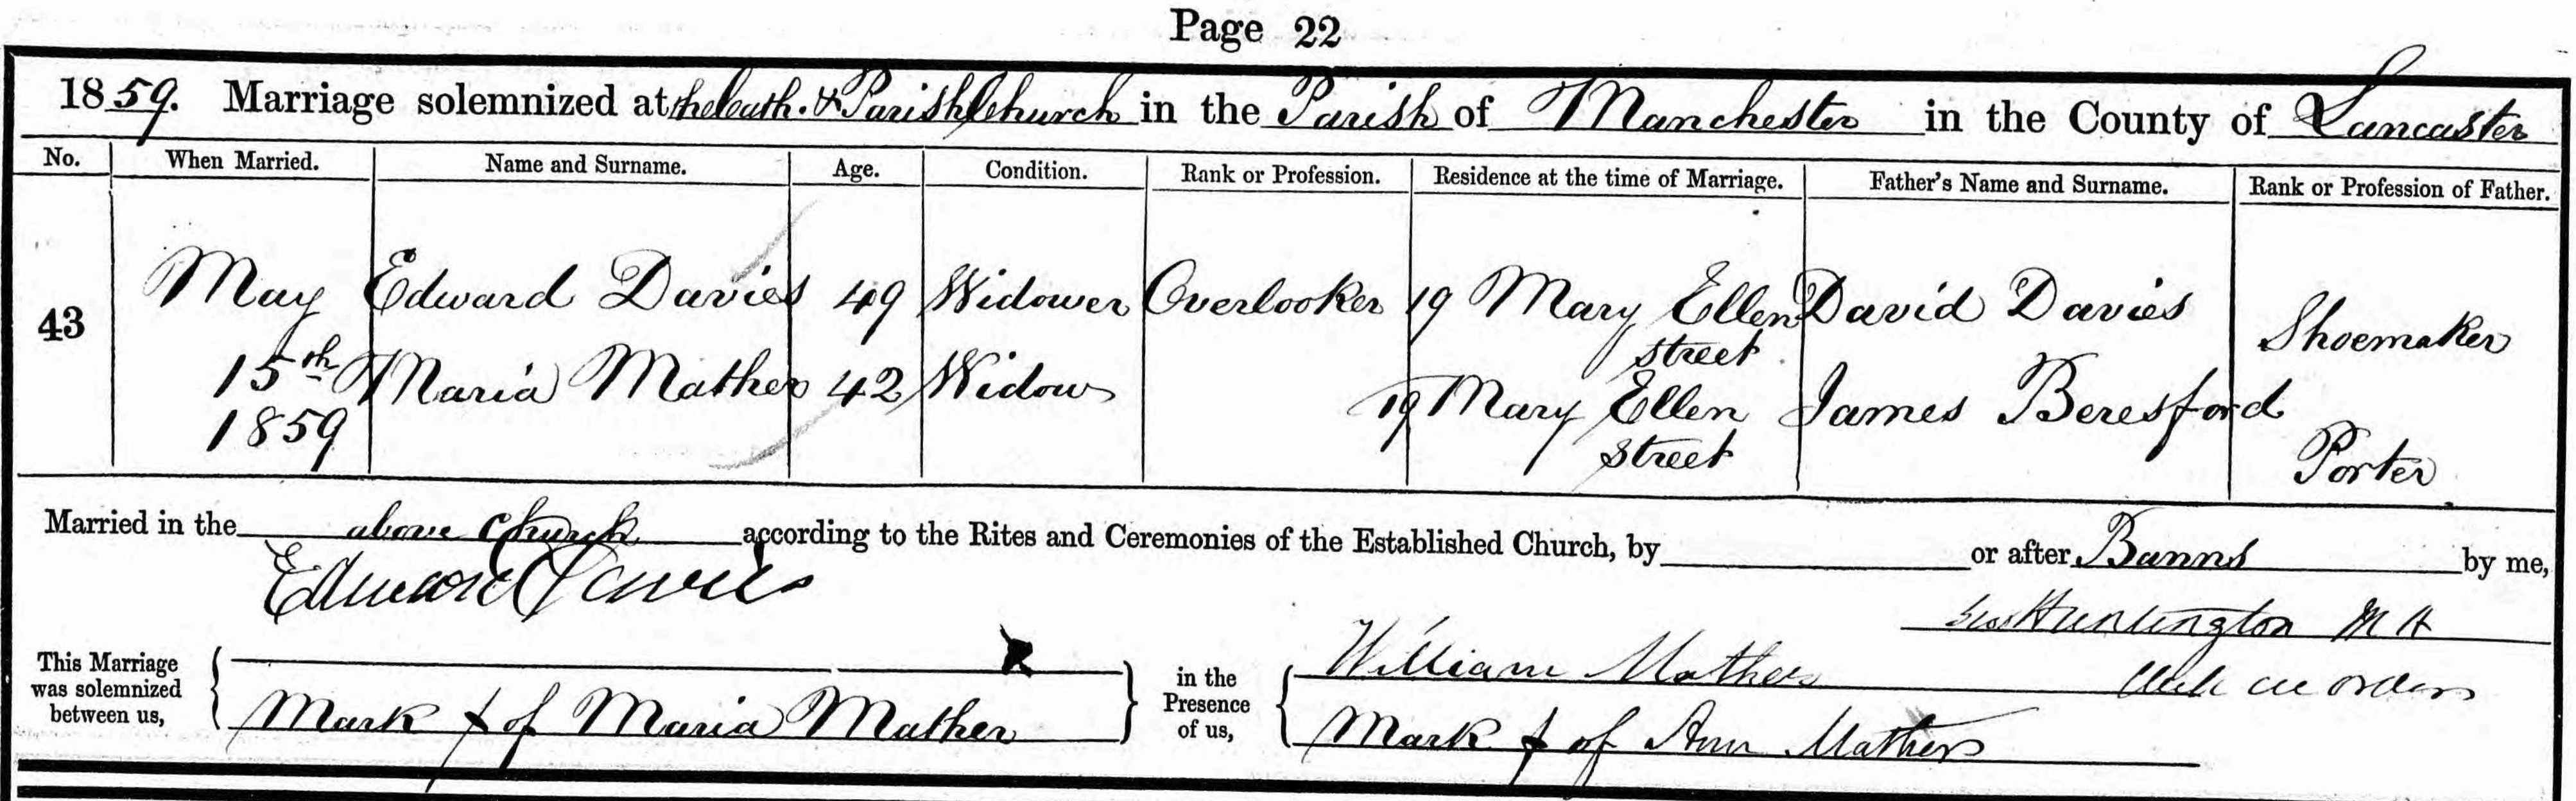 Page 22
1859. Marriage solemnized at the Cath. & Parish Church in the Parish of Manchester in the County of Lancaster
No. When Married. Name and Surname. Age. Condition. Rank or Profession. Residence at the time of Marriage. Father's Name and Surname. Rank or Profession of Father.
43 May 15th 1859
Edward Davies 49 Widower Overlooker 19 Mary Ellen street David Davies Shoemaker
Maria Mather 42 Widow 19 Mary Ellen street James Beresford Porter
Married in the above Church according to the Rites and Ceremonies of the Established Church, by or after Banns by me,
Edward Davies
Huntington M A
This Marriage was solemnized between us,
Mark X of Maria Mather
in the Presence of us,
William Mather
Mark X of Ann Mather